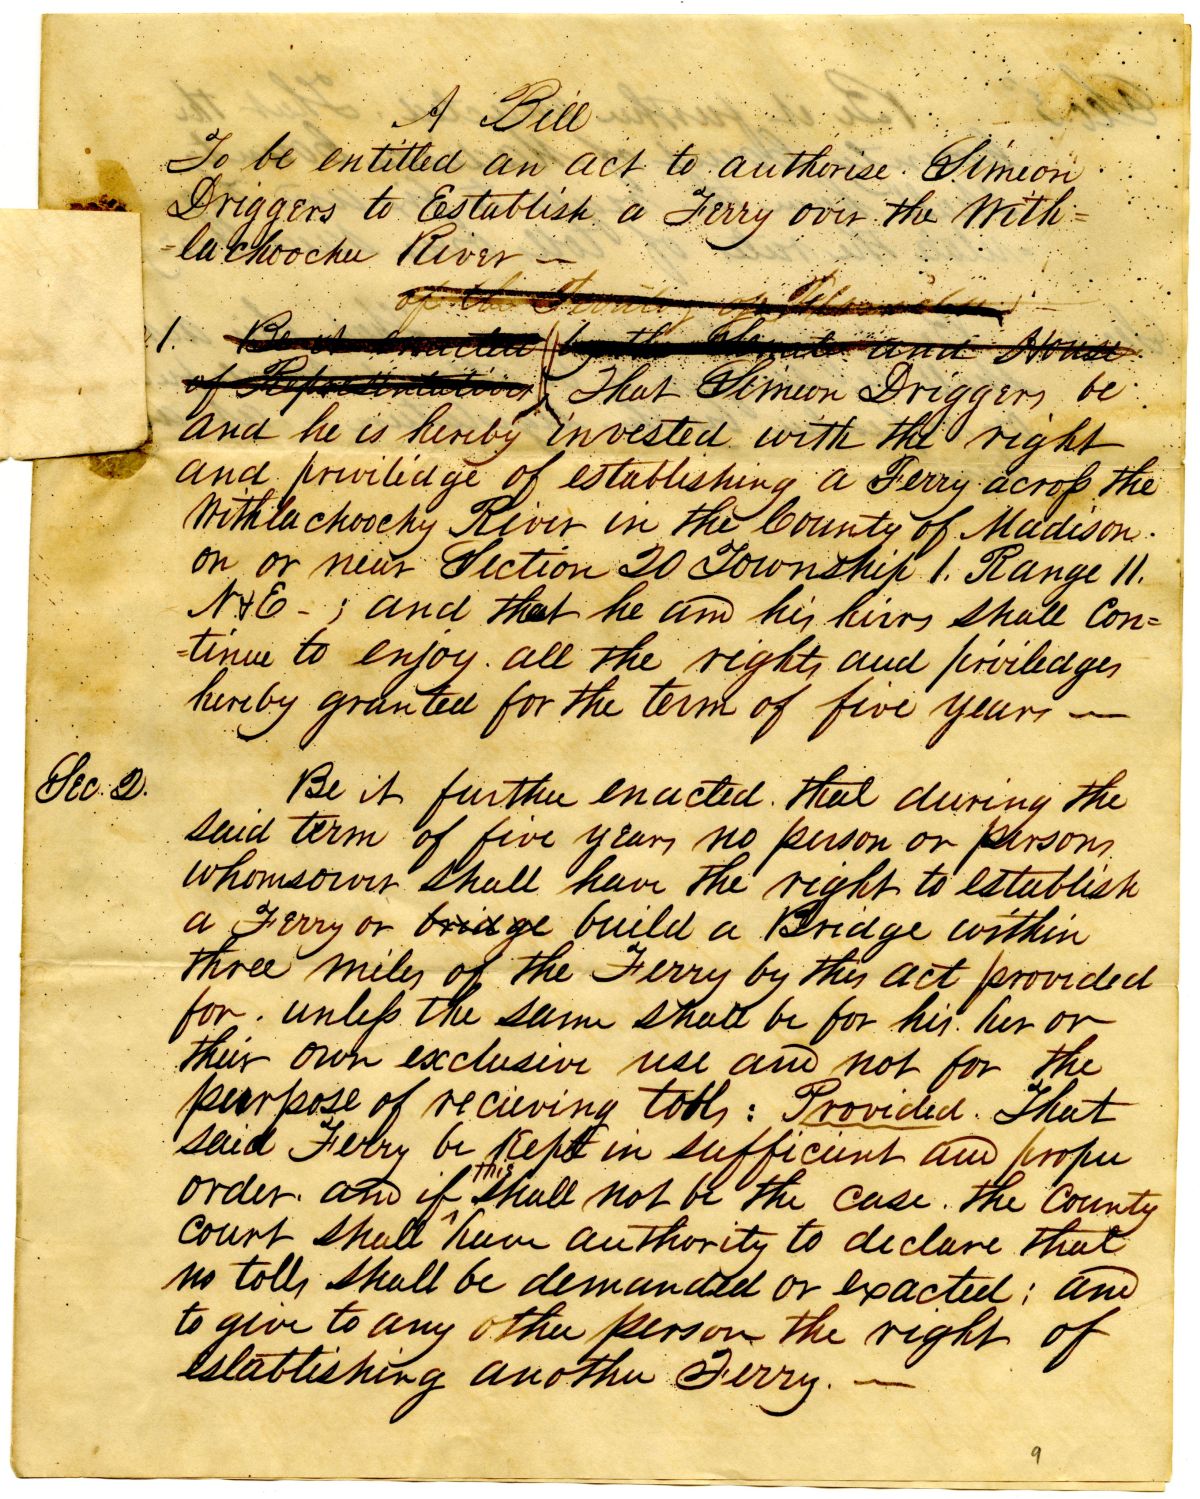 A Bill
To be entitled an act to authorise Simeon
Driggers to Establish a Ferry over the With=
=lachoochee River —
of the Territory of Florida
1. Be it enacted by the Senate and House
of Representatives That Simeon Driggers be
and he is hereby invested with the right
and priviledge of establishing a Ferry across the
Withlachoochy River in the County of Madison.
on or near Section 20 Township 1. Range 11.
N & E - ; and that he and his heirs shall Con=
=tinue to enjoy all the rights and priviledges
hereby granted for the term of five years —
Sec. 2. Be it further enacted. that during the
said term of five years no person or persons
whomsoever shall have the right to establish
a Ferry or bridge build a Bridge within
three miles of the Ferry by this act provided
for. unless the same shall be for his. her or
their own exclusive use and not for the
purpose of recieving tolls: Provided. That
said Ferry be Kept in sufficient and proper
this
order. and if shall not be the case. the County
Court shall have authority to declare that
no tolls shall be demanded or exacted; and
to give to any other person the right of
establishing another Ferry. —
9